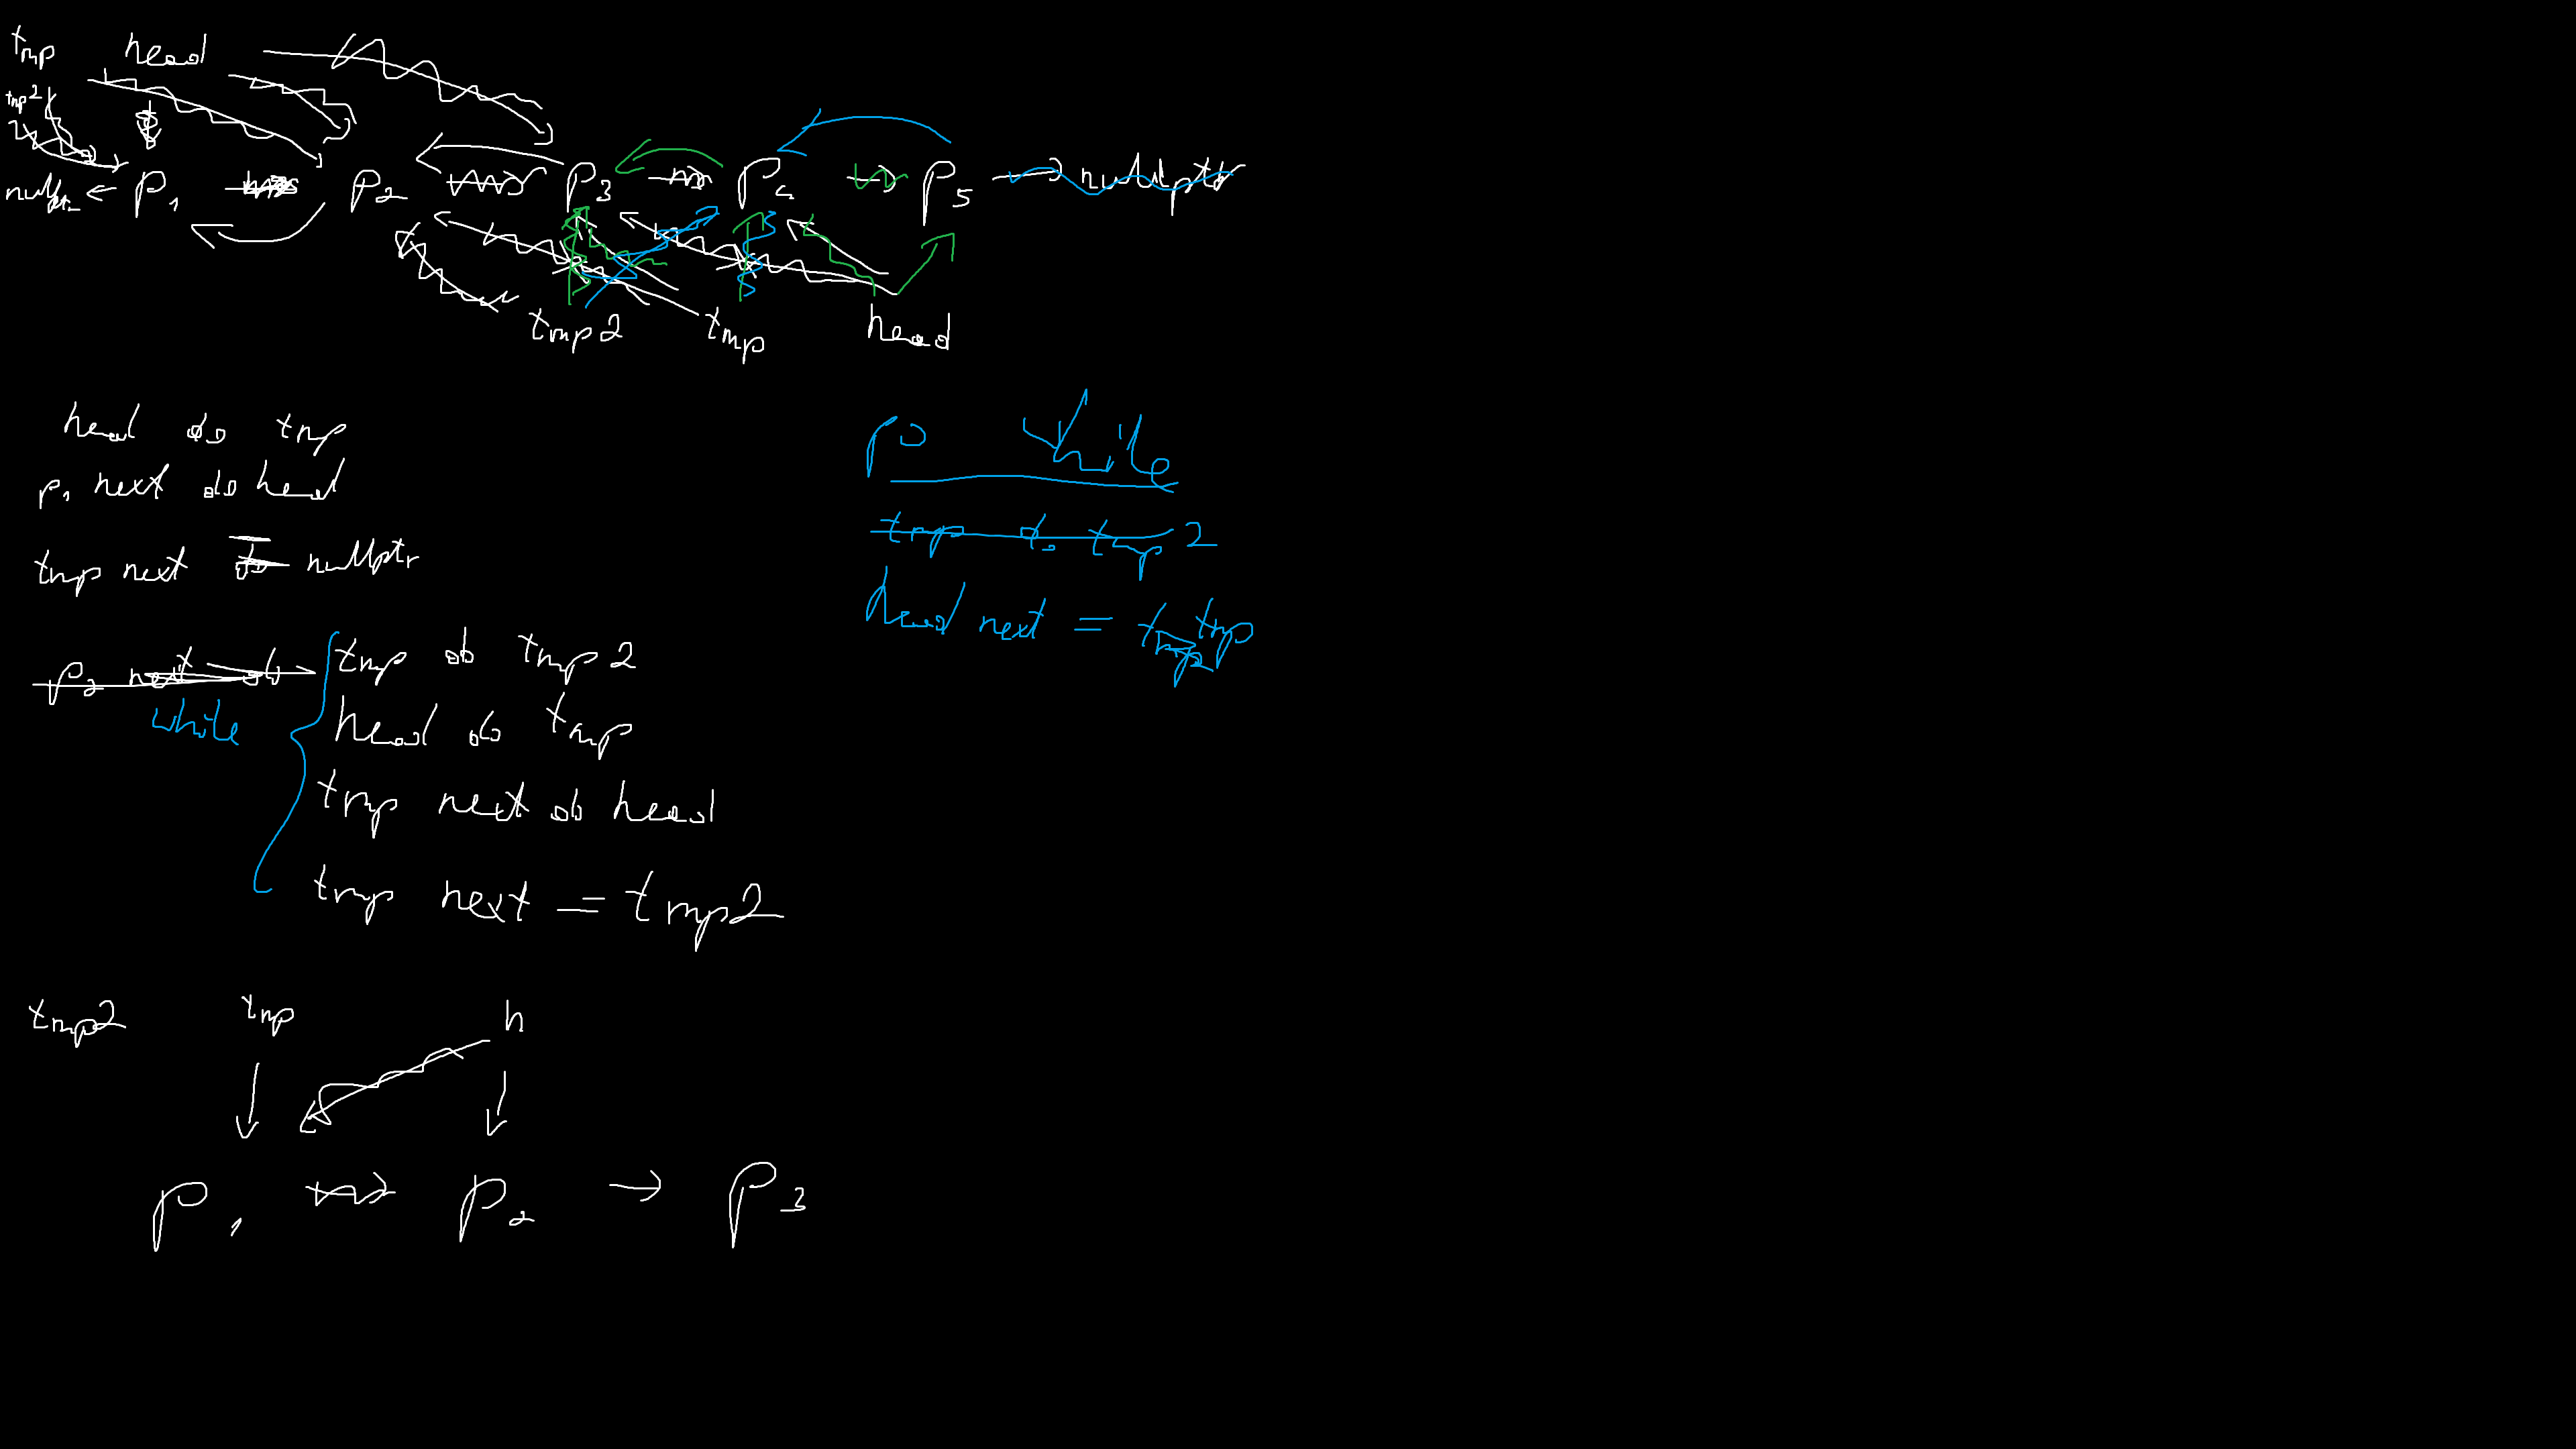 tmp head
tmp2
nullptr ← P1 P2 P3 P4 → P5 → nullptr
tmp2 tmp head
head do tmp
p1 next do head
tmp next = nullptr
P2 next do
while
tmp do tmp2
head do tmp
tmp next do head
tmp next = tmp2
po while
tmp do tmp2
head next = tmp2 tmp
tmp2 tmp h
P1 → P2 → P3